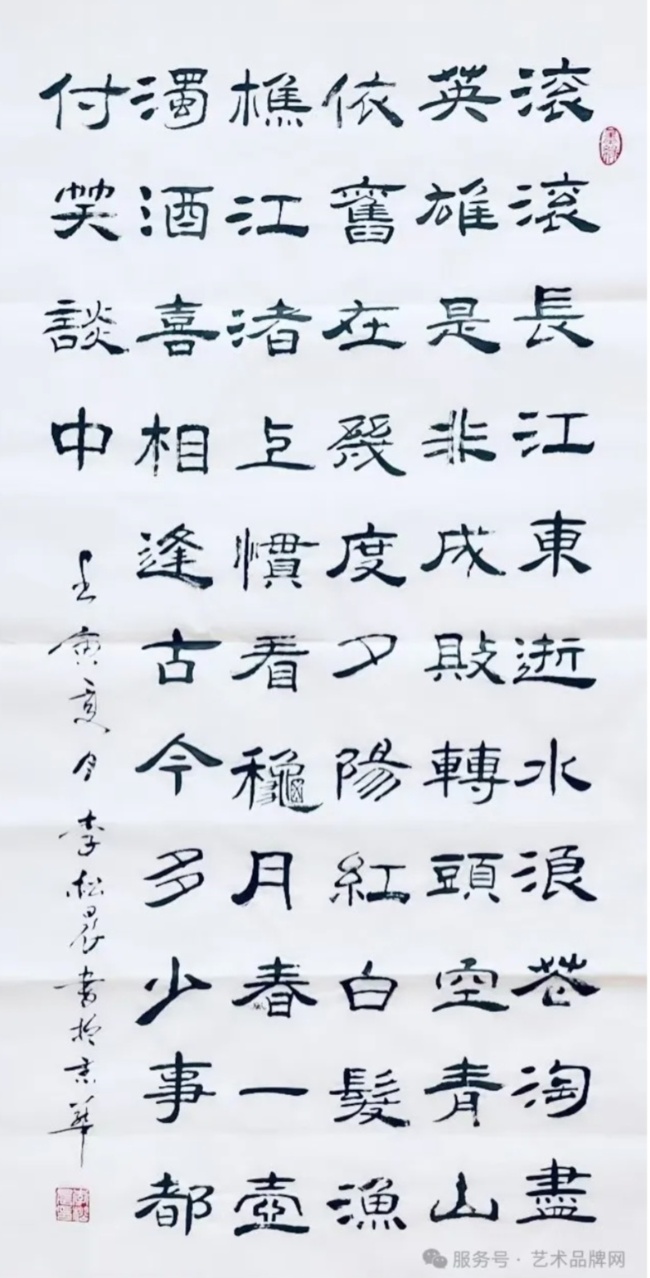 滚滚長江東逝水浪花淘盡
英雄是非成敗轉頭空青山
依舊在幾度夕陽紅白髮漁
樵江渚上慣看穐月春一壺
濁酒喜相逢古今多少事都
付笑談中
壬寅夏月李松晨书於京華
服务号 · 艺术品牌网